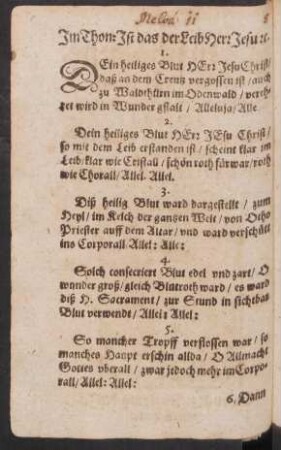 Melod. 11
8
Im Thon: Ist das der Leib Herr Jesu ꝛc.
1.
DEin heiliges Blut HErr JesuChrist/
daß an dem Creutz vergossen ist / auch
zu Waldthürn im Odenwald / vereh-
ret wird in Wunder gstalt / Alleluja/Alle.
2.
Dein heiliges Blut HErr JEsu Christ /
so mit dem Leib erstanden ist / scheint klar im
Leib/klar wie Cristall / schön roth fürwar/roth
wie Chorall/Allel. Allel.
3.
Diß heilig Blut ward dargestellt / zum
Heyl / im Kelch der gantzen Welt / von Otho
Priester auff dem Altar / und ward verschütt
ins Corporall/Allel: Alle:
4.
Solch consecriert Blut edel vnd zart / O
wunder groß/gleich Blutroth ward / es ward
diß H. Sacrament / zur Stund in sichtbas
Blut verwendt / Allel: Allel:
5.
So mancher Tropff verflossen war / so
manches Haupt erschin allda / O Allmacht
Gottes vberall / zwar jedoch mehr im Corpo-
rall/Allel: Allel:
6. Dann